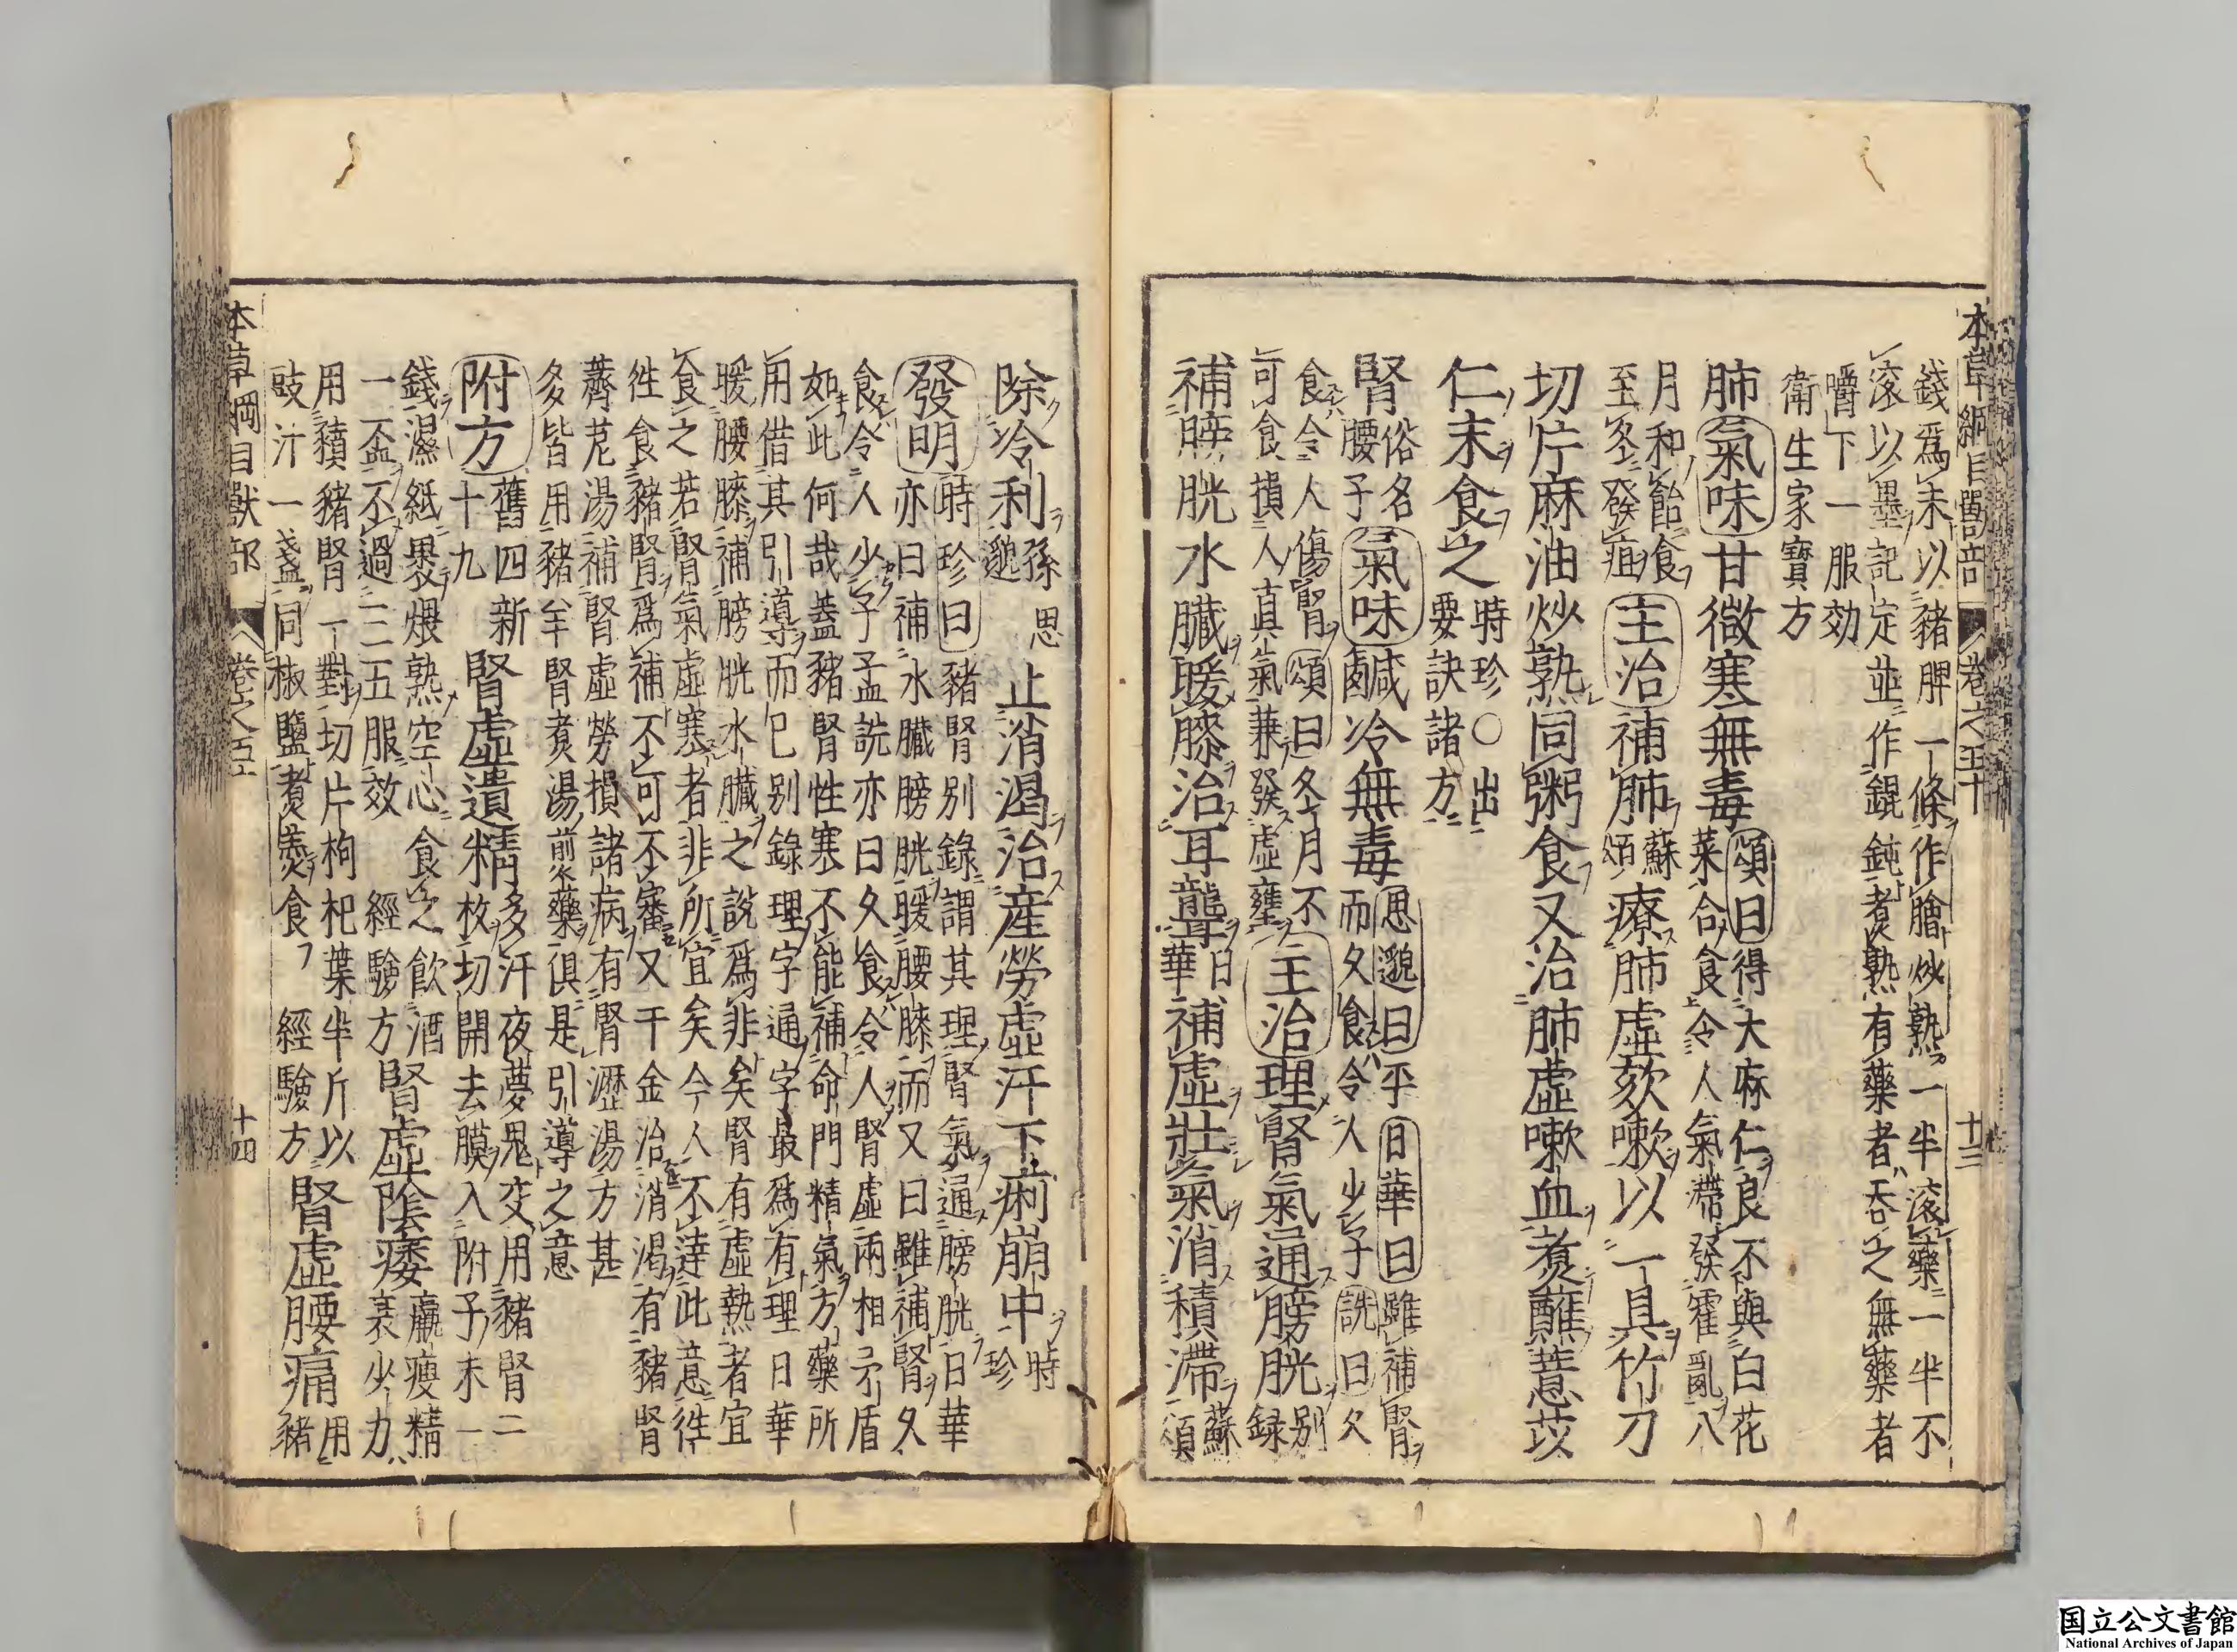 本草綱目獸部 卷之五十 十三
錢爲末以豬脾一條作膾炒熟一半滾藥一半不
滾以墨記定並作餛飩煮熟有藥者吞之無藥者
嚼下一服効
衛生家寶方
肺氣味甘微寒無毒頌曰得大麻仁良不與白花
菜合食令人氣滯發霍亂八
月和飴食
至冬發疽主治補肺蘇
頌療肺虛欬嗽以一具竹刀
切片麻油炒熟同粥食又治肺虛嗽血煮蘸薏苡
仁末食之時珍○出
要訣諸方
腎俗名
腰子氣味鹹冷無毒思邈曰平日華曰雖補腎
而久食令人少子詵曰久
食令人傷腎頌曰冬月不
可食損人真氣兼發虛壅主治理腎氣通膀胱別
錄
補膀胱水臟暖膝治耳聾日
華補虛壯氣消積滯蘇
頌
除冷利孫思
邈止消渴治産勞虛汗下痢崩中時
珍
發明時珍曰豬腎別錄謂其理腎氣通膀胱日華
亦曰補水臟膀胱暖腰膝而又曰雖補腎久
食令人少子孟詵亦曰久食令人腎虛兩相矛盾
如此何哉蓋豬腎性寒不能補命門精氣方藥所
用借其引導而已別錄理字通字最爲有理日華
暖腰膝補膀胱水臟之說爲非矣腎有虛熱者宜
食之若腎氣虛寒者非所宜矣今人不達此意徃
徃食豬腎爲補不可不審又千金治消渴有豬腎
薺苨湯補腎虛勞損諸病有腎瀝湯方甚
多皆用豬羊腎煮湯煎藥俱是引導之意
附方舊四新
十九腎虛遺精多汗夜夢鬼交用豬腎二
枚切開去膜入附子末一
錢濕紙裹煨熟空心食之飲酒
一盃不過三五服效 經驗方腎虛陰痿羸瘦精
衰少力用
用豶豬腎一對切片枸杞葉半斤以
豉汁一盞同椒鹽煮羹食 經驗方腎虛腰痛豬
本草綱目獸部 卷之五十 十四
国立公文書館
National Archives of Japan